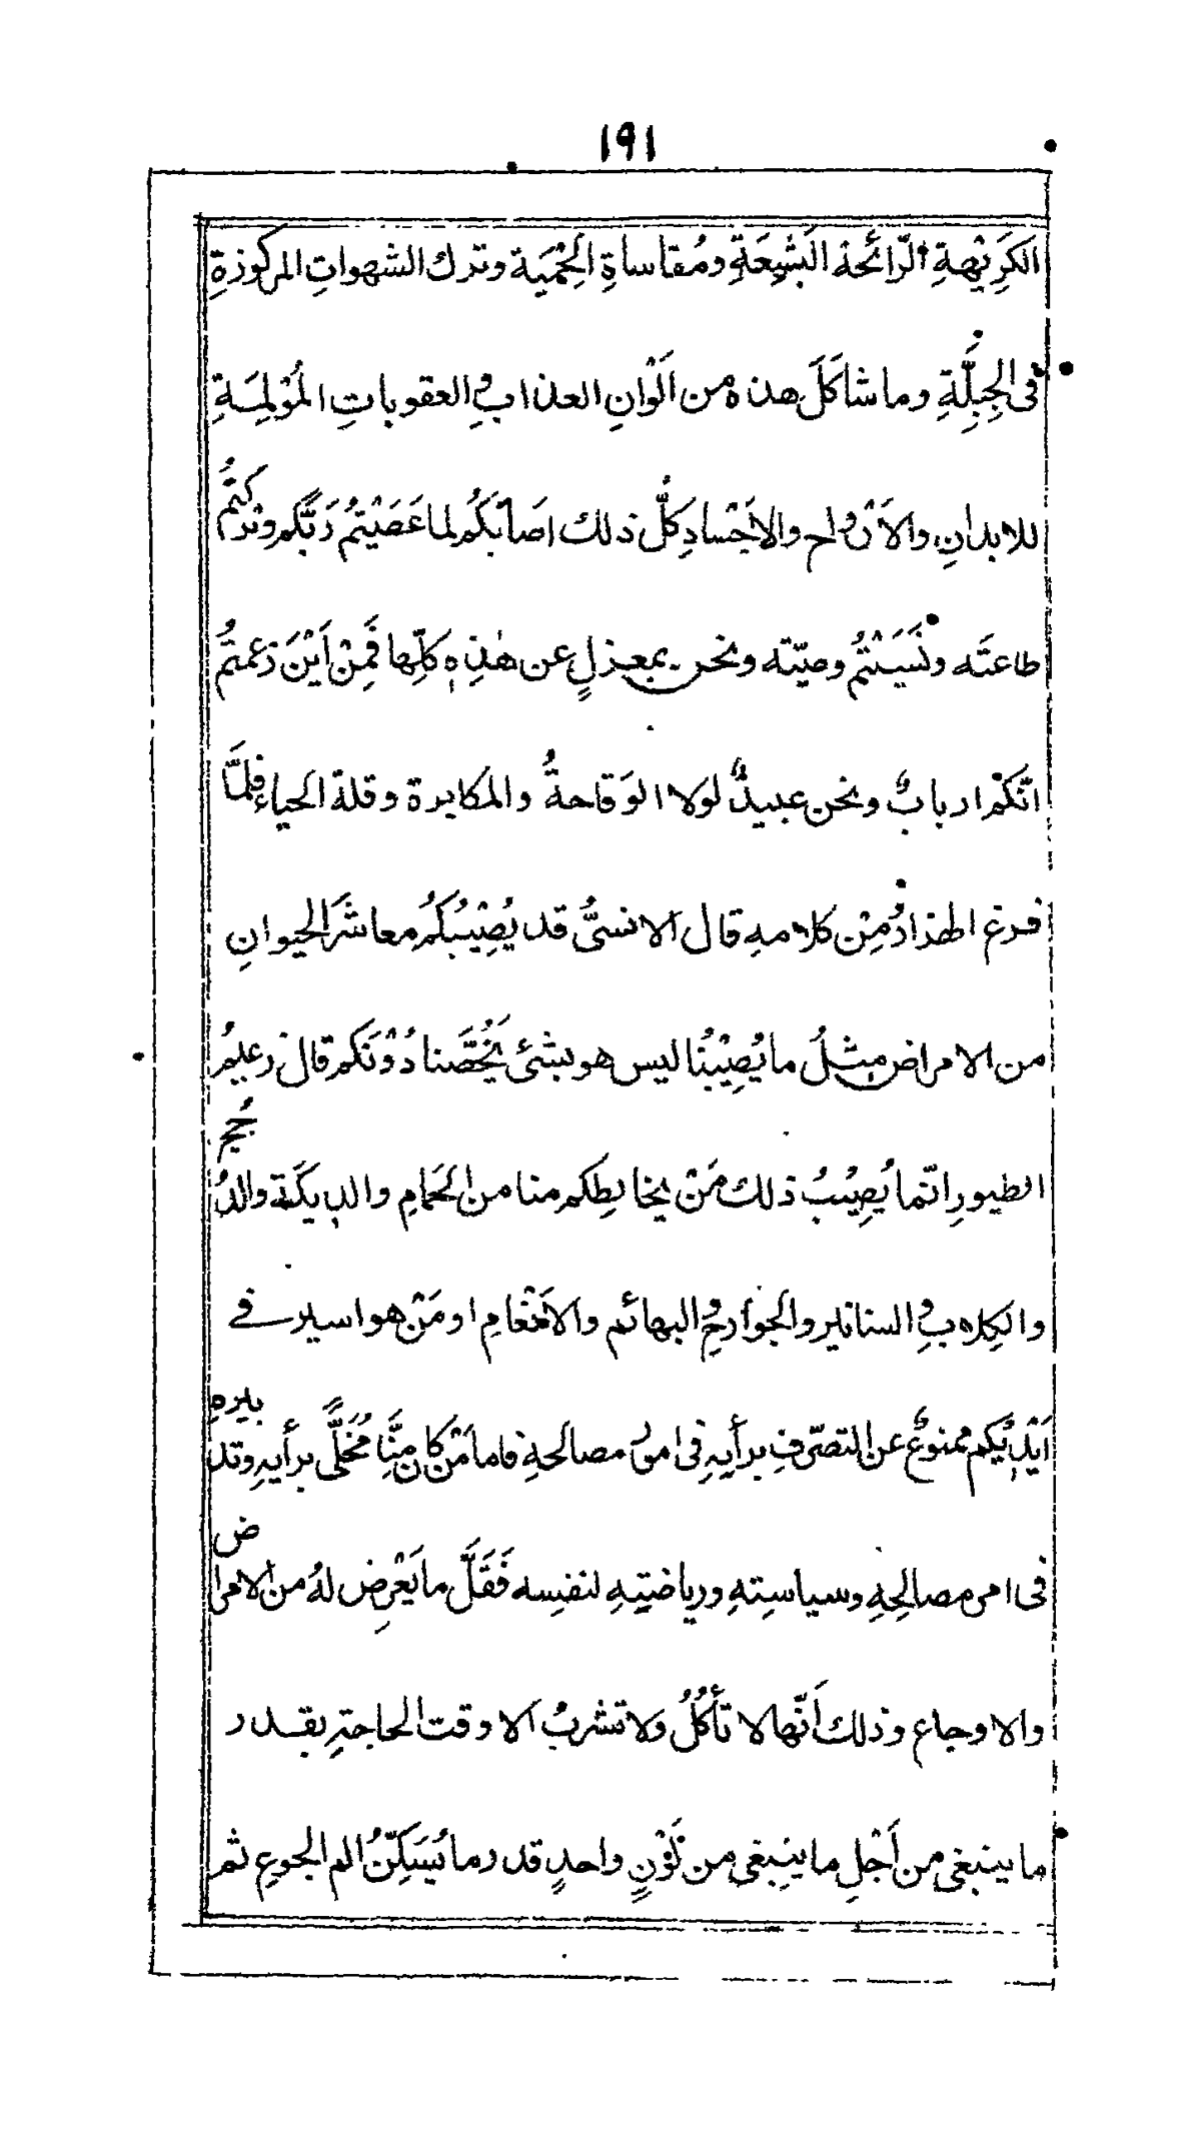 ١٩١
الكَرِيْهةِ الرّائحة البَشِعَةِ ومُقاساةِ الحِمْيَة وترك الشهواتِ المركوزةِ
فى الجِبِلَّةِ وما شاكَلَ هذه من اَلْوانِ العذابِ والعقوباتِ المُؤلِمَةِ
للابدانِ والاَرْواحِ والاَجْسادِ كلُّ ذلك اصَابَكُم لما عَصَيْتُم رَبَّكم وتركتُم
طاعتَه ونَسَيْتُم وصيّته ونحن بمعزلٍ عن هٰذِهٖ كلِّها فَمِنْ اَيْنَ زعمتُم
انّكمْ اربابٌ ونحن عبيدٌ لولا الوَقاحةُ والمكابرة وقلة الحياءِ فلمَّا
فرغ الهزادُ مِنْ كلامهِ قال الانسىُّ قد يُصِيْبُكُم معاشَرَ الحيوانِ
من الامراضِ مِثلُ ما يُصِيْبُنا ليس هو بشئ يَخُصَّنا دُوْنَكم قال زعيمُ
الطيورِ انّما يُصِيْبُ ذلك مَنْ يخالِطكم منا من الحَمامِ والدِيكَة والدُجج
والكِلابِ والسنانير والجوارحِ والبهائم والاَنْعامِ او مَنْ هو اسير فے
اَيْدِيْكم ممنوعٌ عن التصرّفِ برأيِهٖ فى امرِ مصالحهِ فاما مَنْ كان مِنَّا مُخَلًّى برأيهِ وتدبيرهِ
فى امر مصالِحِهِ وسياسِتهِ ورياضتِهِ لنفسِه فَقَلَّ ما يَعْرِض لهُ من الامراض
والاوجاع وذلك اَنّها لا تأكُلُ ولا تشربُ الا وقت الحاجةِ بقدر
ما ينبغى من اَجْلِ ما ينبغى من لَوْنٍ واحدٍ قدر ما يُسَكِّنُ الم الجوعِ ثم